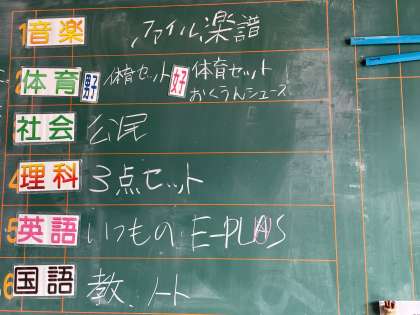 1 音楽 ファイル、楽譜
2 体育 男子 体育セット 女子 体育セット
おくうんシューズ
3 社会 公民
4 理科 3点セット
5 英語 いつもの E-PLAS
6 国語 教、ノート